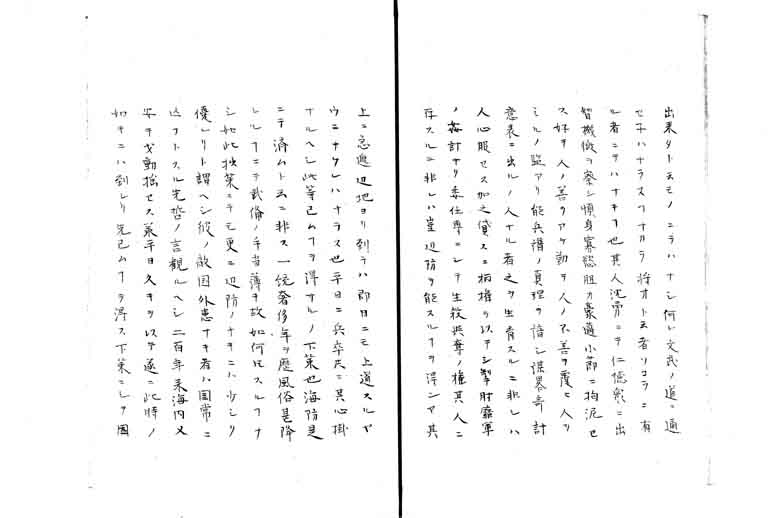 出来タトスモノニラハナシ何レ文武ノ道ニ通
セ子ハナラスフナカラ将オト云者ソコラニ有
ル者ニテハナキフ也其人沈勇ニテ仁徳衆ニ出
智機微ヲ察シ慎身寡慾胆力豪邁小節ニ拘泥セ
ス好テ人ノ善ヲアケ勤テ人ノ不善ヲ覆ヒ人ヲ
シルノ監アリ能兵備ノ真理ヲ悟シ謀畧奇計
意表ニ出ルノ人ナル者之ヲ生育スルニ非レハ
人心服セス加之貸スニ柄権ヲ以テシ掣肘靡軍
ノ姦計ナク委任専ニシテ生殺与奪ノ権其人ニ
存スルニ非レハ豈辺防ヲ能スルフヲ得ンヤ其
上ニ急遽辺地ヨリ到テハ即日ニモ上道スルヤ
ウニナケレハナラス也平日ニ兵卒尺ニ其心掛
ナルヘシ此等已ムフヲ得サルノ下策也海防是
ニテ済ムト云ニ非ス一統奢侈年ヲ歴風俗是降
レルフニテ武備ノ手当薄キ故如何𪜈スルフナ
シ如此拙策ニテモ更ニ辺防ノナキニハ少シク
優レリト謂ヘシ縦ノ敵国外患ナキ者ハ国常ニ
亡フトスル先哲ノ言観ルヘシ二百年来海内又
安ヲ戈動揺セス承平日久キヲ以テ遂ニ此時ノ
如キニハ到レリ先已ムフヲ得ス下策ニシテ国